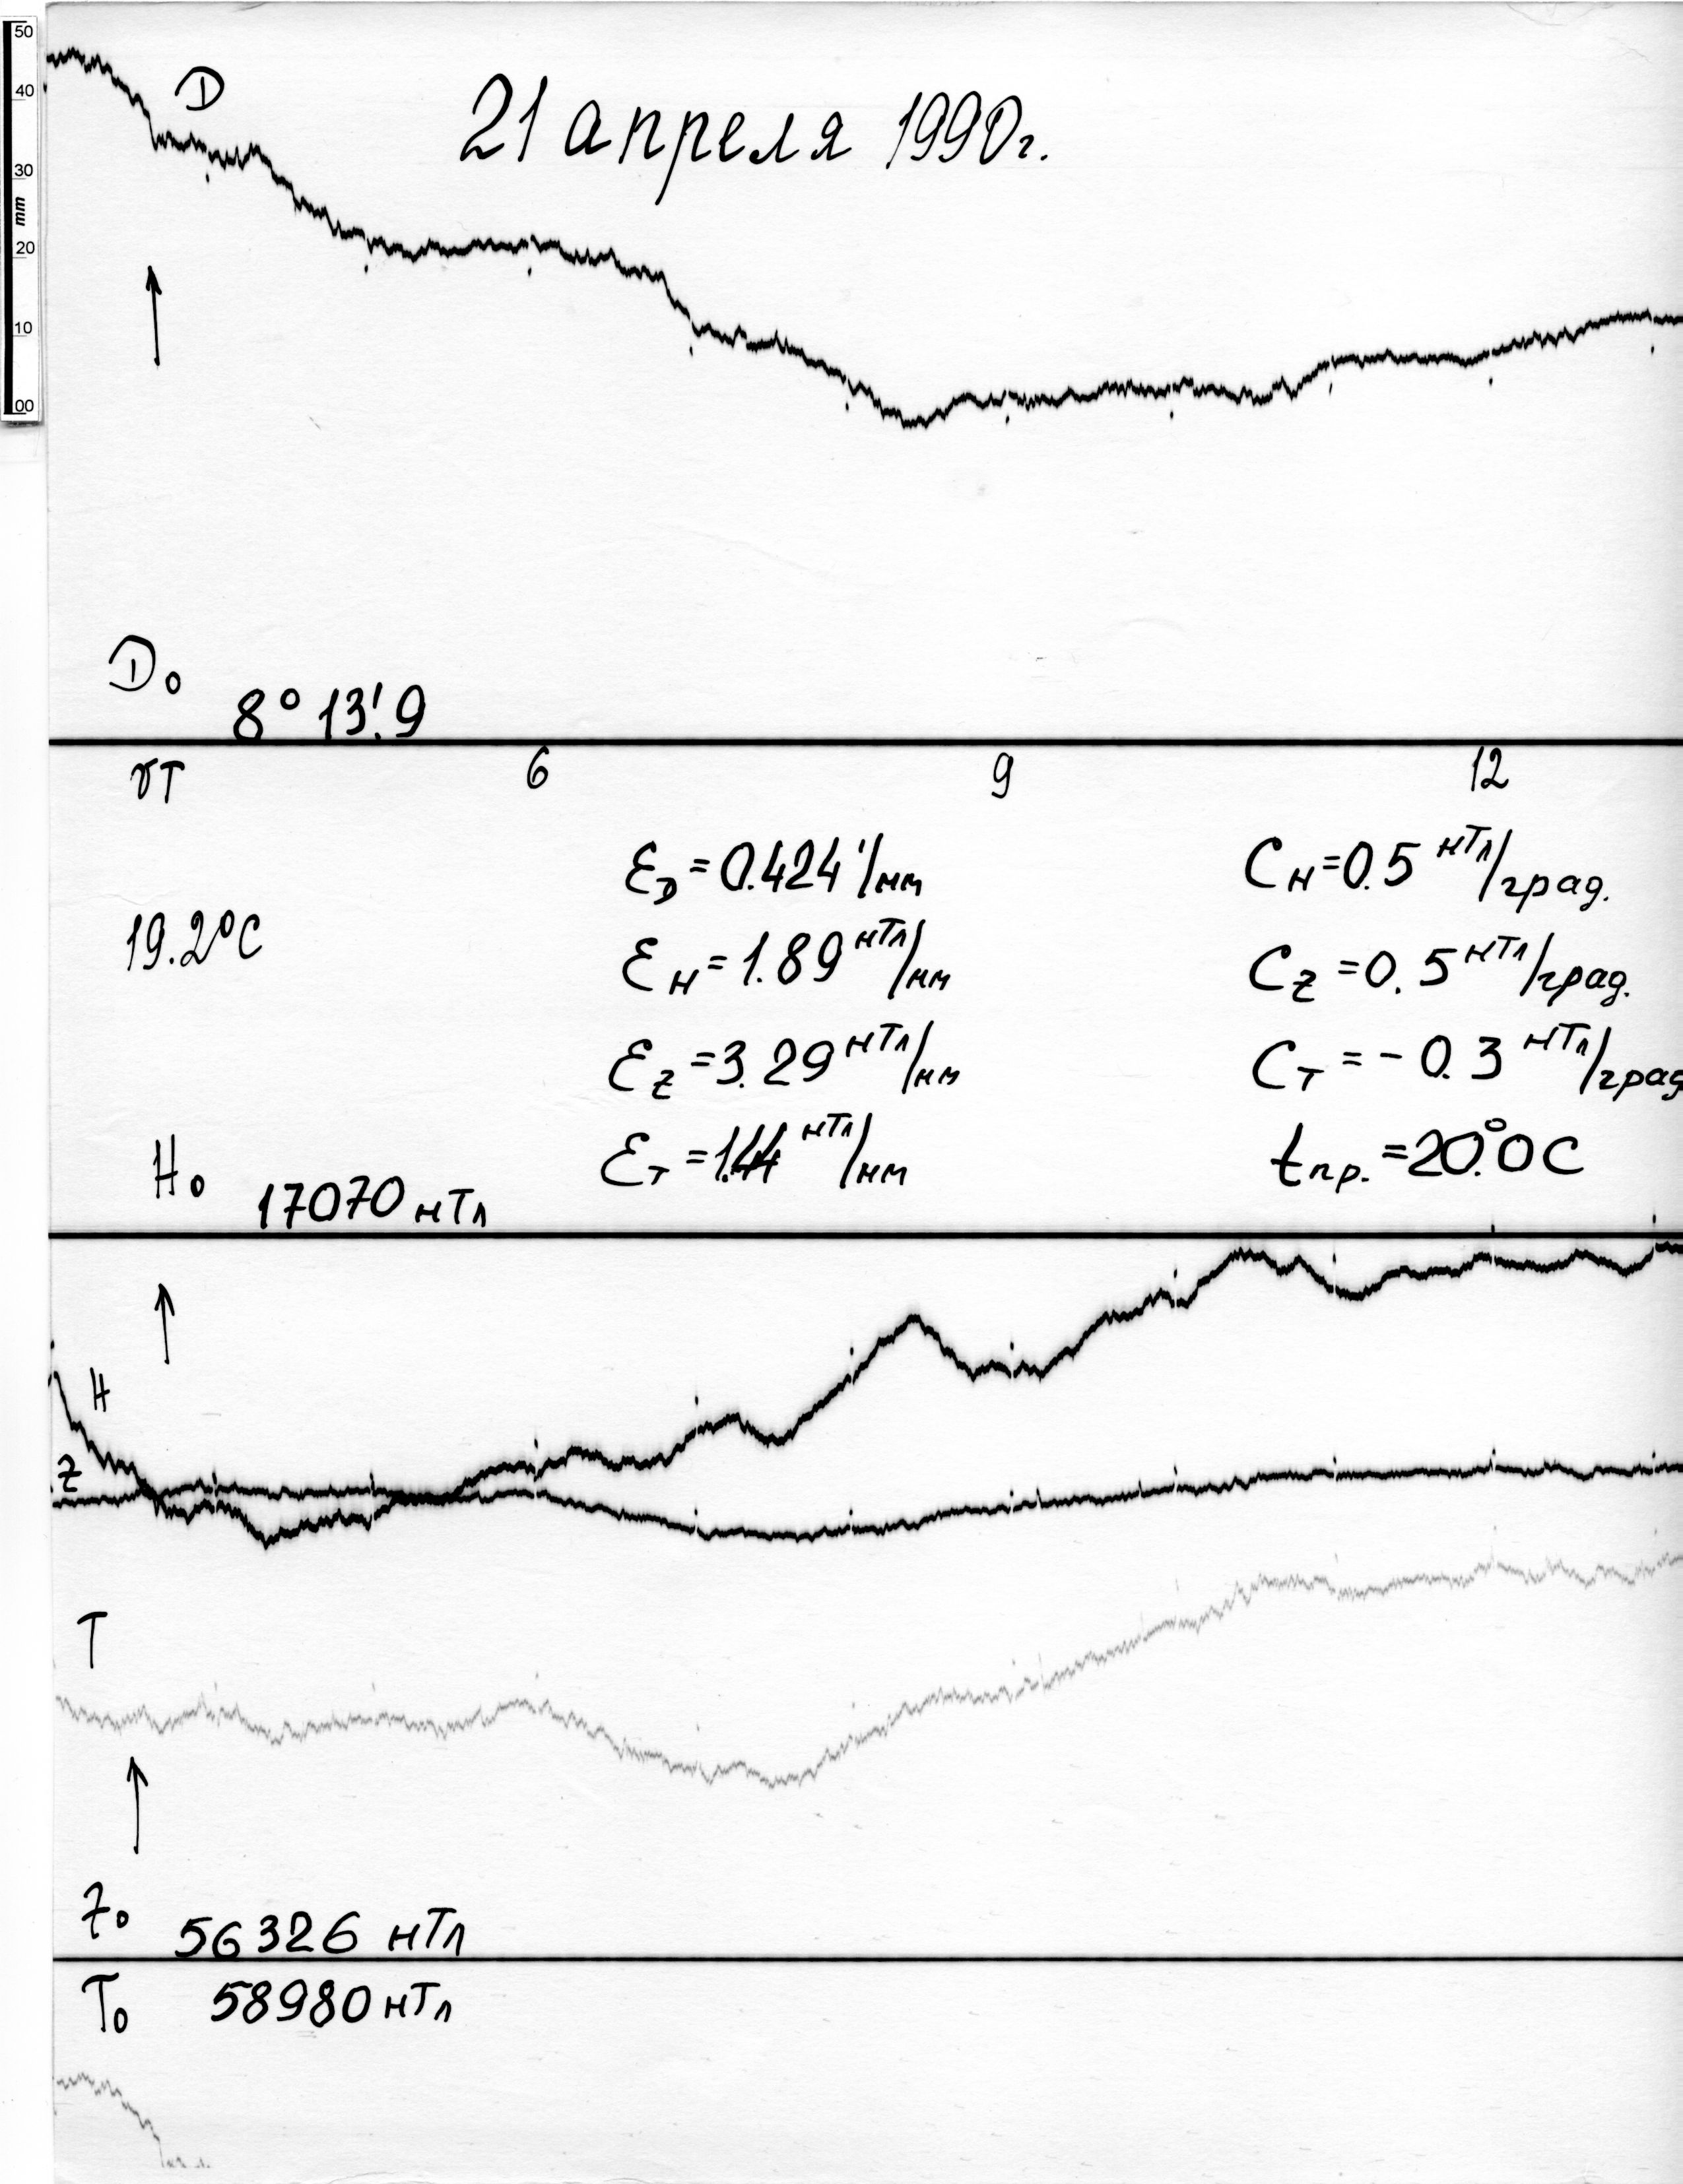 50
40
30
mm
20
10
00
D
21 апреля 1990г.
D₀ 8° 13!9
UT 6 9 12
ε_D = 0.424 '/мм C_H = 0.5 нТл/град.
19.2°C
ε_H = 1.89 нТл/мм C_Z = 0.5 нТл/град.
ε_Z = 3.29 нТл/мм C_T = - 0.3 нТл/град
ε_T = 1.44 нТл/мм t пр. = 20°.0 C
H₀ 17070 нТл
H
Z
T
Z₀ 56326 нТл
T₀ 58980 нТл